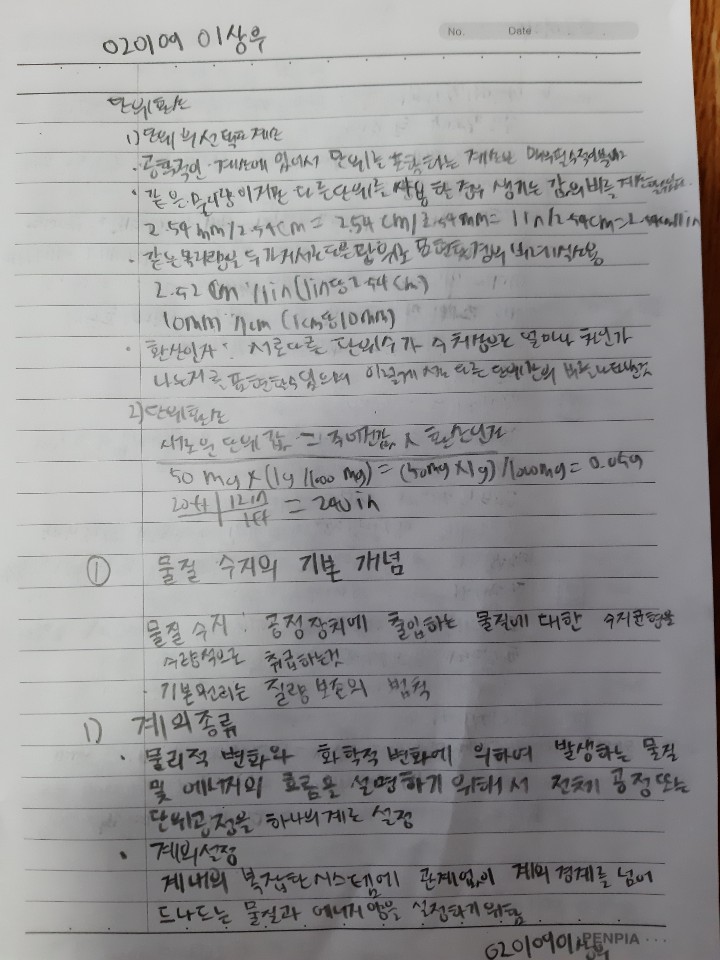 020109 이상우
No. Date
단위환산
1) 단위의 선택과 계산
· 공학적인 계산에 있어서 단위를 포함하는 계산은 매우 필수적
· 같은 물리량이지만 다른 단위를 사용할 경우 생기는 값의 비를 계산
2.54 mm/2.54cm = 2.54 cm/2.54mm = 1in/2.54cm = 2.54cm/1in
· 같은 물리량을 두가지 서로 다른 단위로 표현한 경우
2.52 cm/1in (1in당 2.54 cm)
10mm/1cm (1cm당 10mm)
· 환산인자 : 서로다른 단위수가 수치상으로 얼마나 차이가
나는지를 표현한 수 있으며 이렇게 서로 다른 단위간의 비를 나타낸것
2) 단위환산
새로운 단위 값 = 주어진값 x 환산인자
50 mg x (1g/1000 mg) = (50mg x 1g) / 1000mg = 0.05g
20ft | 12in / 1ft = 240 in
① 물질 수지의 기본 개념
물질 수지 : 공정장치에 출입하는 물질에 대한 수지균형을
수량적으로 취급하는것
· 기본원리는 질량 보존의 법칙
1) 계의종류
· 물리적 변화와 화학적 변화에 의하여 발생하는 물질
및 에너지의 흐름을 설명하기 위해서 전체 공정 또는
단위공정을 하나의 계로 설정
· 계의설정
계내의 복잡한 시스템에 관계없이 계의 경계를 넘어
드나드는 물질과 에너지양을 설정하기위함
020109이상우
PENPIA